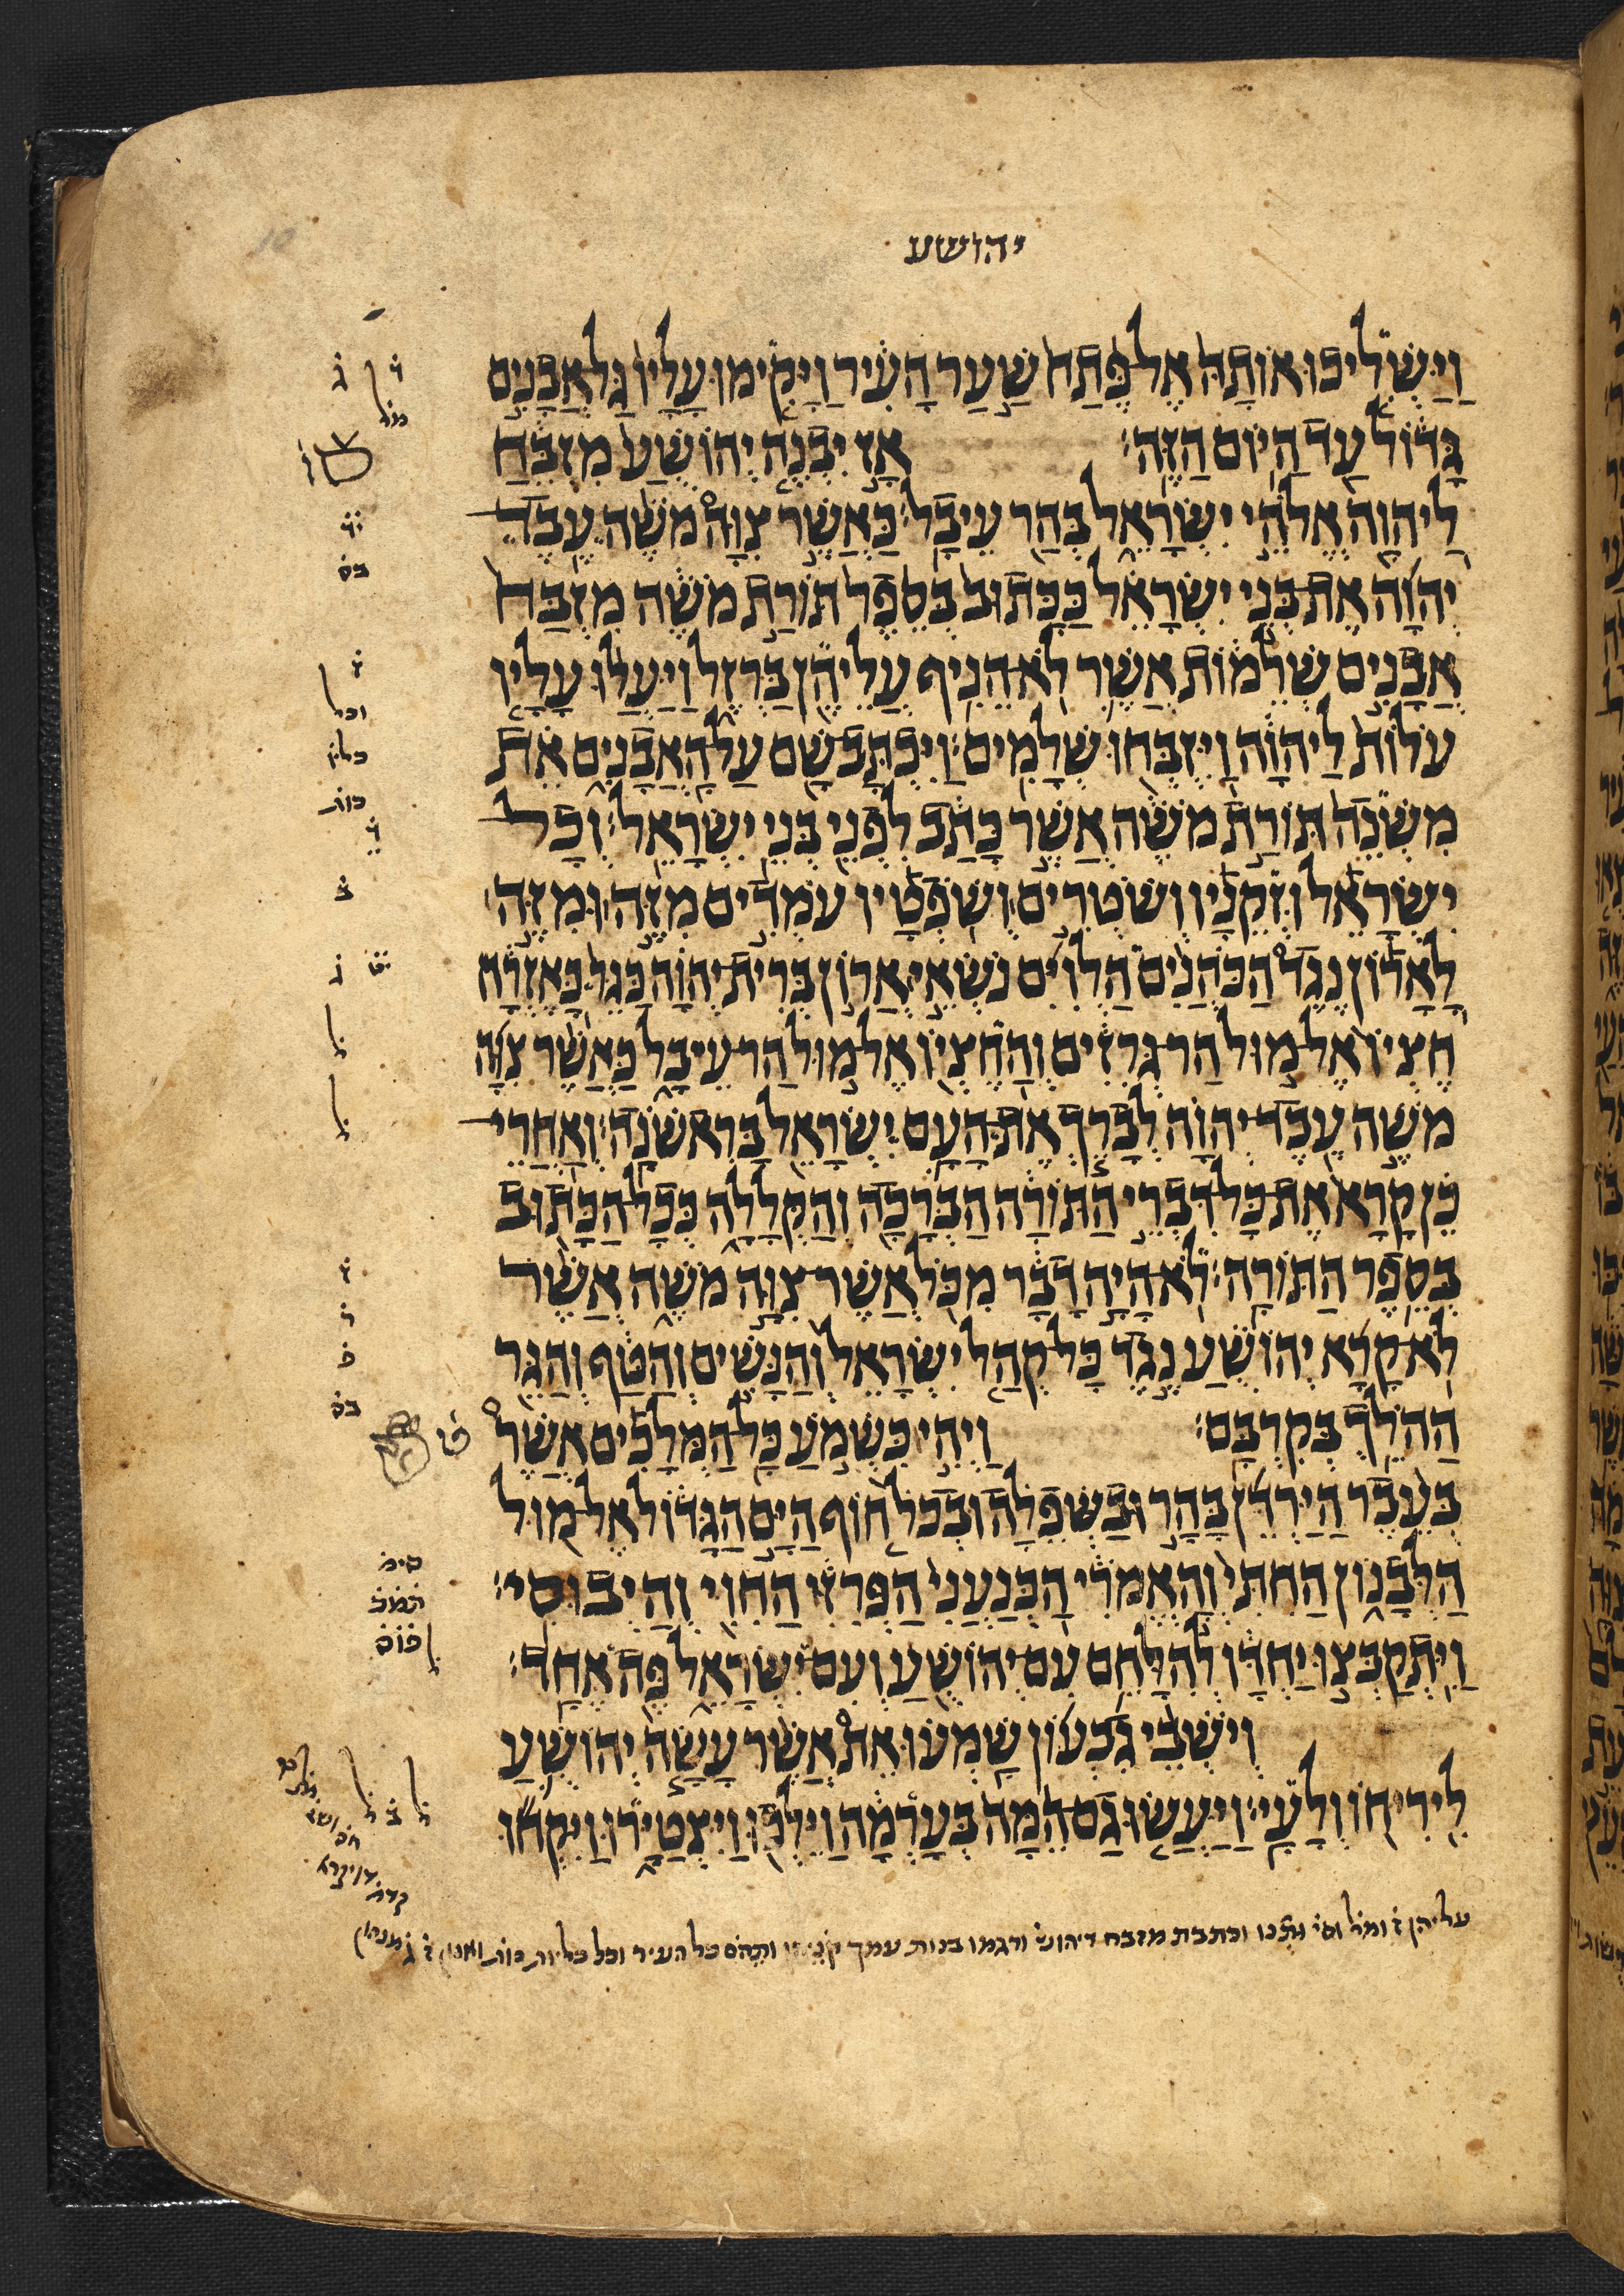 יהושע
וַיַּשְׁלִיכוּ אוֹתָהּ אֶל פֶּתַח שַׁעַר הָעִיר וַיָּקִימוּ עָלָיו גַּל אֲבָנִים
גָּדוֹל עַד הַיּוֹם הַזֶּה׃ אָז יִבְנֶה יְהוֹשֻׁעַ מִזְבֵּחַ
לַיהוָה אֱלֹהֵי יִשְׂרָאֵל בְּהַר עֵיבָל׃ כַּאֲשֶׁר צִוָּה מֹשֶׁה עֶבֶד
יְהוָה אֶת בְּנֵי יִשְׂרָאֵל כַּכָּתוּב בְּסֵפֶר תּוֹרַת מֹשֶׁה מִזְבַּח
אֲבָנִים שְׁלֵמוֹת אֲשֶׁר לֹא הֵנִיף עֲלֵיהֶן בַּרְזֶל וַיַּעֲלוּ עָלָיו
עֹלוֹת לַיהוָה וַיִּזְבְּחוּ שְׁלָמִים׃ וַיִּכְתָּב שָׁם עַל הָאֲבָנִים אֵת
מִשְׁנֵה תּוֹרַת מֹשֶׁה אֲשֶׁר כָּתַב לִפְנֵי בְּנֵי יִשְׂרָאֵל׃ וְכָל
יִשְׂרָאֵל וּזְקֵנָיו וְשֹׁטְרִים וְשֹׁפְטָיו עֹמְדִים מִזֶּה וּמִזֶּה
לָאָרוֹן נֶגֶד הַכֹּהֲנִים הַלְוִיִּם נֹשְׂאֵי אֲרוֹן בְּרִית יְהוָה כַּגֵּר כָּאֶזְרָח
חֶצְיוֹ אֶל מוּל הַר גְּרִזִים וְהַחֶצְיוֹ אֶל מוּל הַר עֵיבָל כַּאֲשֶׁר צִוָּה
מֹשֶׁה עֶבֶד יְהוָה לְבָרֵךְ אֶת הָעָם יִשְׂרָאֵל בָּרִאשֹׁנָה׃ וְאַחֲרֵי
כֵן קָרָא אֶת כָּל דִּבְרֵי הַתּוֹרָה הַבְּרָכָה וְהַקְּלָלָה כְּכָל הַכָּתוּב
בְּסֵפֶר הַתּוֹרָה׃ לֹא הָיָה דָבָר מִכֹּל אֲשֶׁר צִוָּה מֹשֶׁה אֲשֶׁר
לֹא קָרָא יְהוֹשֻׁעַ נֶגֶד כָּל קְהַל יִשְׂרָאֵל וְהַנָּשִׁים וְהַטַּף וְהַגֵּר
הַהֹלֵךְ בְּקִרְבָּם׃ וַיְהִי כִשְׁמֹעַ כָּל הַמְּלָכִים אֲשֶׁר
בְּעֵבֶר הַיַּרְדֵּן בָּהָר וּבַשְּׁפֵלָה וּבְכֹל חוֹף הַיָּם הַגָּדוֹל אֶל מוּל
הַלְּבָנוֹן הַחִתִּי וְהָאֱמֹרִי הַכְּנַעֲנִי הַפְּרִזִּי הַחִוִּי וְהַיְבוּסִי׃
וַיִּתְקַבְּצוּ יַחְדָּו לְהִלָּחֵם עִם יְהוֹשֻׁעַ וְעִם יִשְׂרָאֵל פֶּה אֶחָד׃
וְיֹשְׁבֵי גִבְעוֹן שָׁמְעוּ אֵת אֲשֶׁר עָשָׂה יְהוֹשֻׁעַ
לִירִיחוֹ וְלָעָי׃ וַיַּעֲשׂוּ גַם הֵמָּה בְּעָרְמָה וַיֵּלְכוּ וַיִּצְטַיָּרוּ וַיִּקְחוּ
עליהן ומל וכתבת מזבח בנות עמך כל העיר וכל